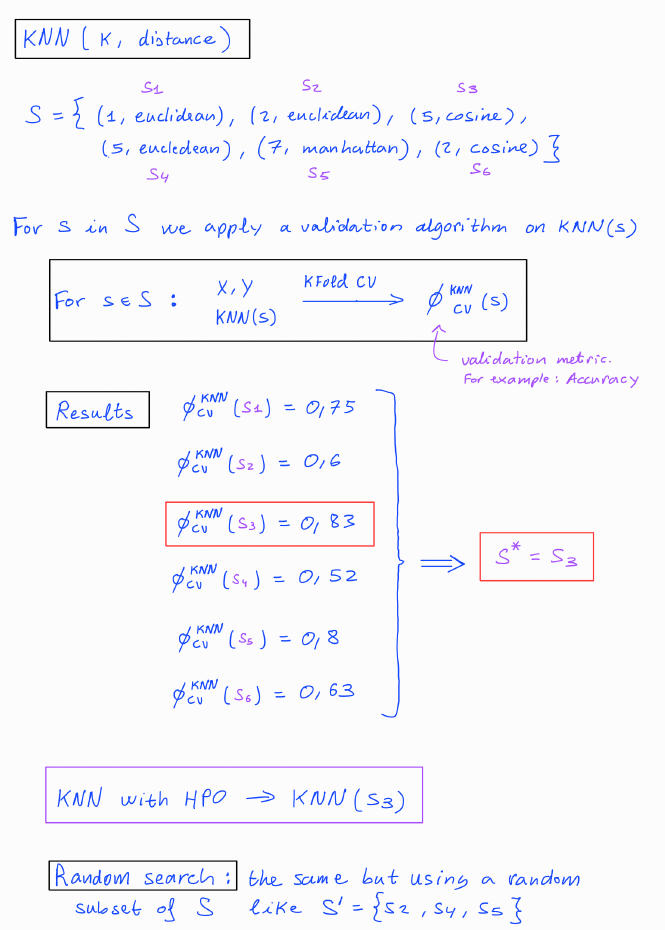 KNN ( K, distance )
S1 S2 S3
S = { (1, euclidean), (2, euclidean), (5, cosine),
(5, eucledean), (7, manhattan), (2, cosine) }
S4 S5 S6
For s in S we apply a validation algorithm on KNN(s)
For s ∈ S : X, Y KFold CV ϕ KNN CV (s)
KNN(s)
validation metric.
For example: Accuracy
Results ϕ KNN CV (S1) = 0,75
ϕ KNN CV (S2) = 0,6
ϕ KNN CV (S3) = 0,83
S* = S3
ϕ KNN CV (S4) = 0,52
ϕ KNN CV (S5) = 0,8
ϕ KNN CV (S6) = 0,63
KNN with HPO → KNN (S3)
Random search: the same but using a random
subset of S like S' = {S2, S4, S5}